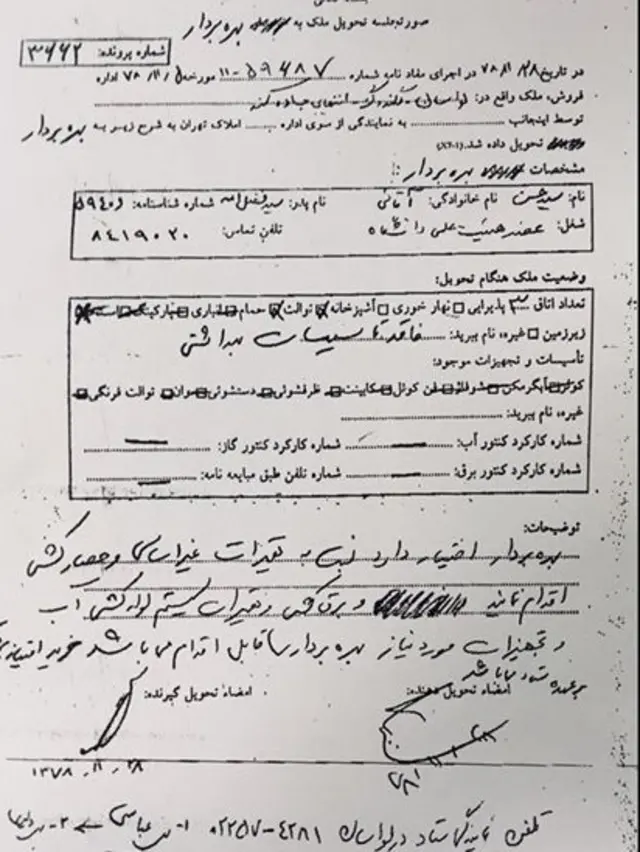 صورتجلسه تحویل ملک به بهره بردار
شماره پرونده: ۳۶۶۲
در تاریخ ۷۸/۱۱/۲۸ در اجرای مفاد نامه شماره ۵۹۴۸۷-۱۱ مورخه ۷۸/۱۱/ اداره
فروش، ملک واقع در: لواسان - انتهای جاده
توسط اینجانب به نمایندگی از سوی اداره املاک تهران به شرح زیر به بهره بردار
تحویل داده شد.
مشخصات بهره بردار:
نام: سید حسن نام خانوادگی: نام پدر: سید شماره شناسنامه:
شغل: عضو هیئت علمی دانشگاه تلفن تماس: ۸۴۱۹۰۲۰
وضعیت ملک هنگام تحویل:
تعداد اتاق پذیرایی نهار خوری آشپزخانه توالت حمام انباری پارکینگ
زیرزمین غیره، نام ببرید: فاقد تاسیسات بهداشتی
تأسیسات و تجهیزات موجود:
کولر آبگرمکن شوفاژ فن کوئل کابینت ظرفشوئی دستشوئی وان توالت فرنگی
غیره، نام ببرید:
شماره کارکرد کنتور آب: شماره کارکرد کنتور گاز:
شماره کارکرد کنتور برق: شماره تلفن طبق مبایعه نامه:
توضیحات:
بهره بردار اختیار دارد نسبت به تغییرات غیراساسی و حصارکشی
اقدام نماید و برق کشی و تعمیرات سیستم لوله کشی آب
و تجهیزات مورد نیاز بهره بردار قابل اقدام می باشد خرید
بعهده ستاد می باشد
امضاء تحویل دهنده: امضاء تحویل گیرنده:
۱۳۷۸/۱۱/۲۸
تلفن نمایندگی ستاد در لواسان ۴۲۸۱-۰۲۲۵۷ ۱- عباسی ۲-